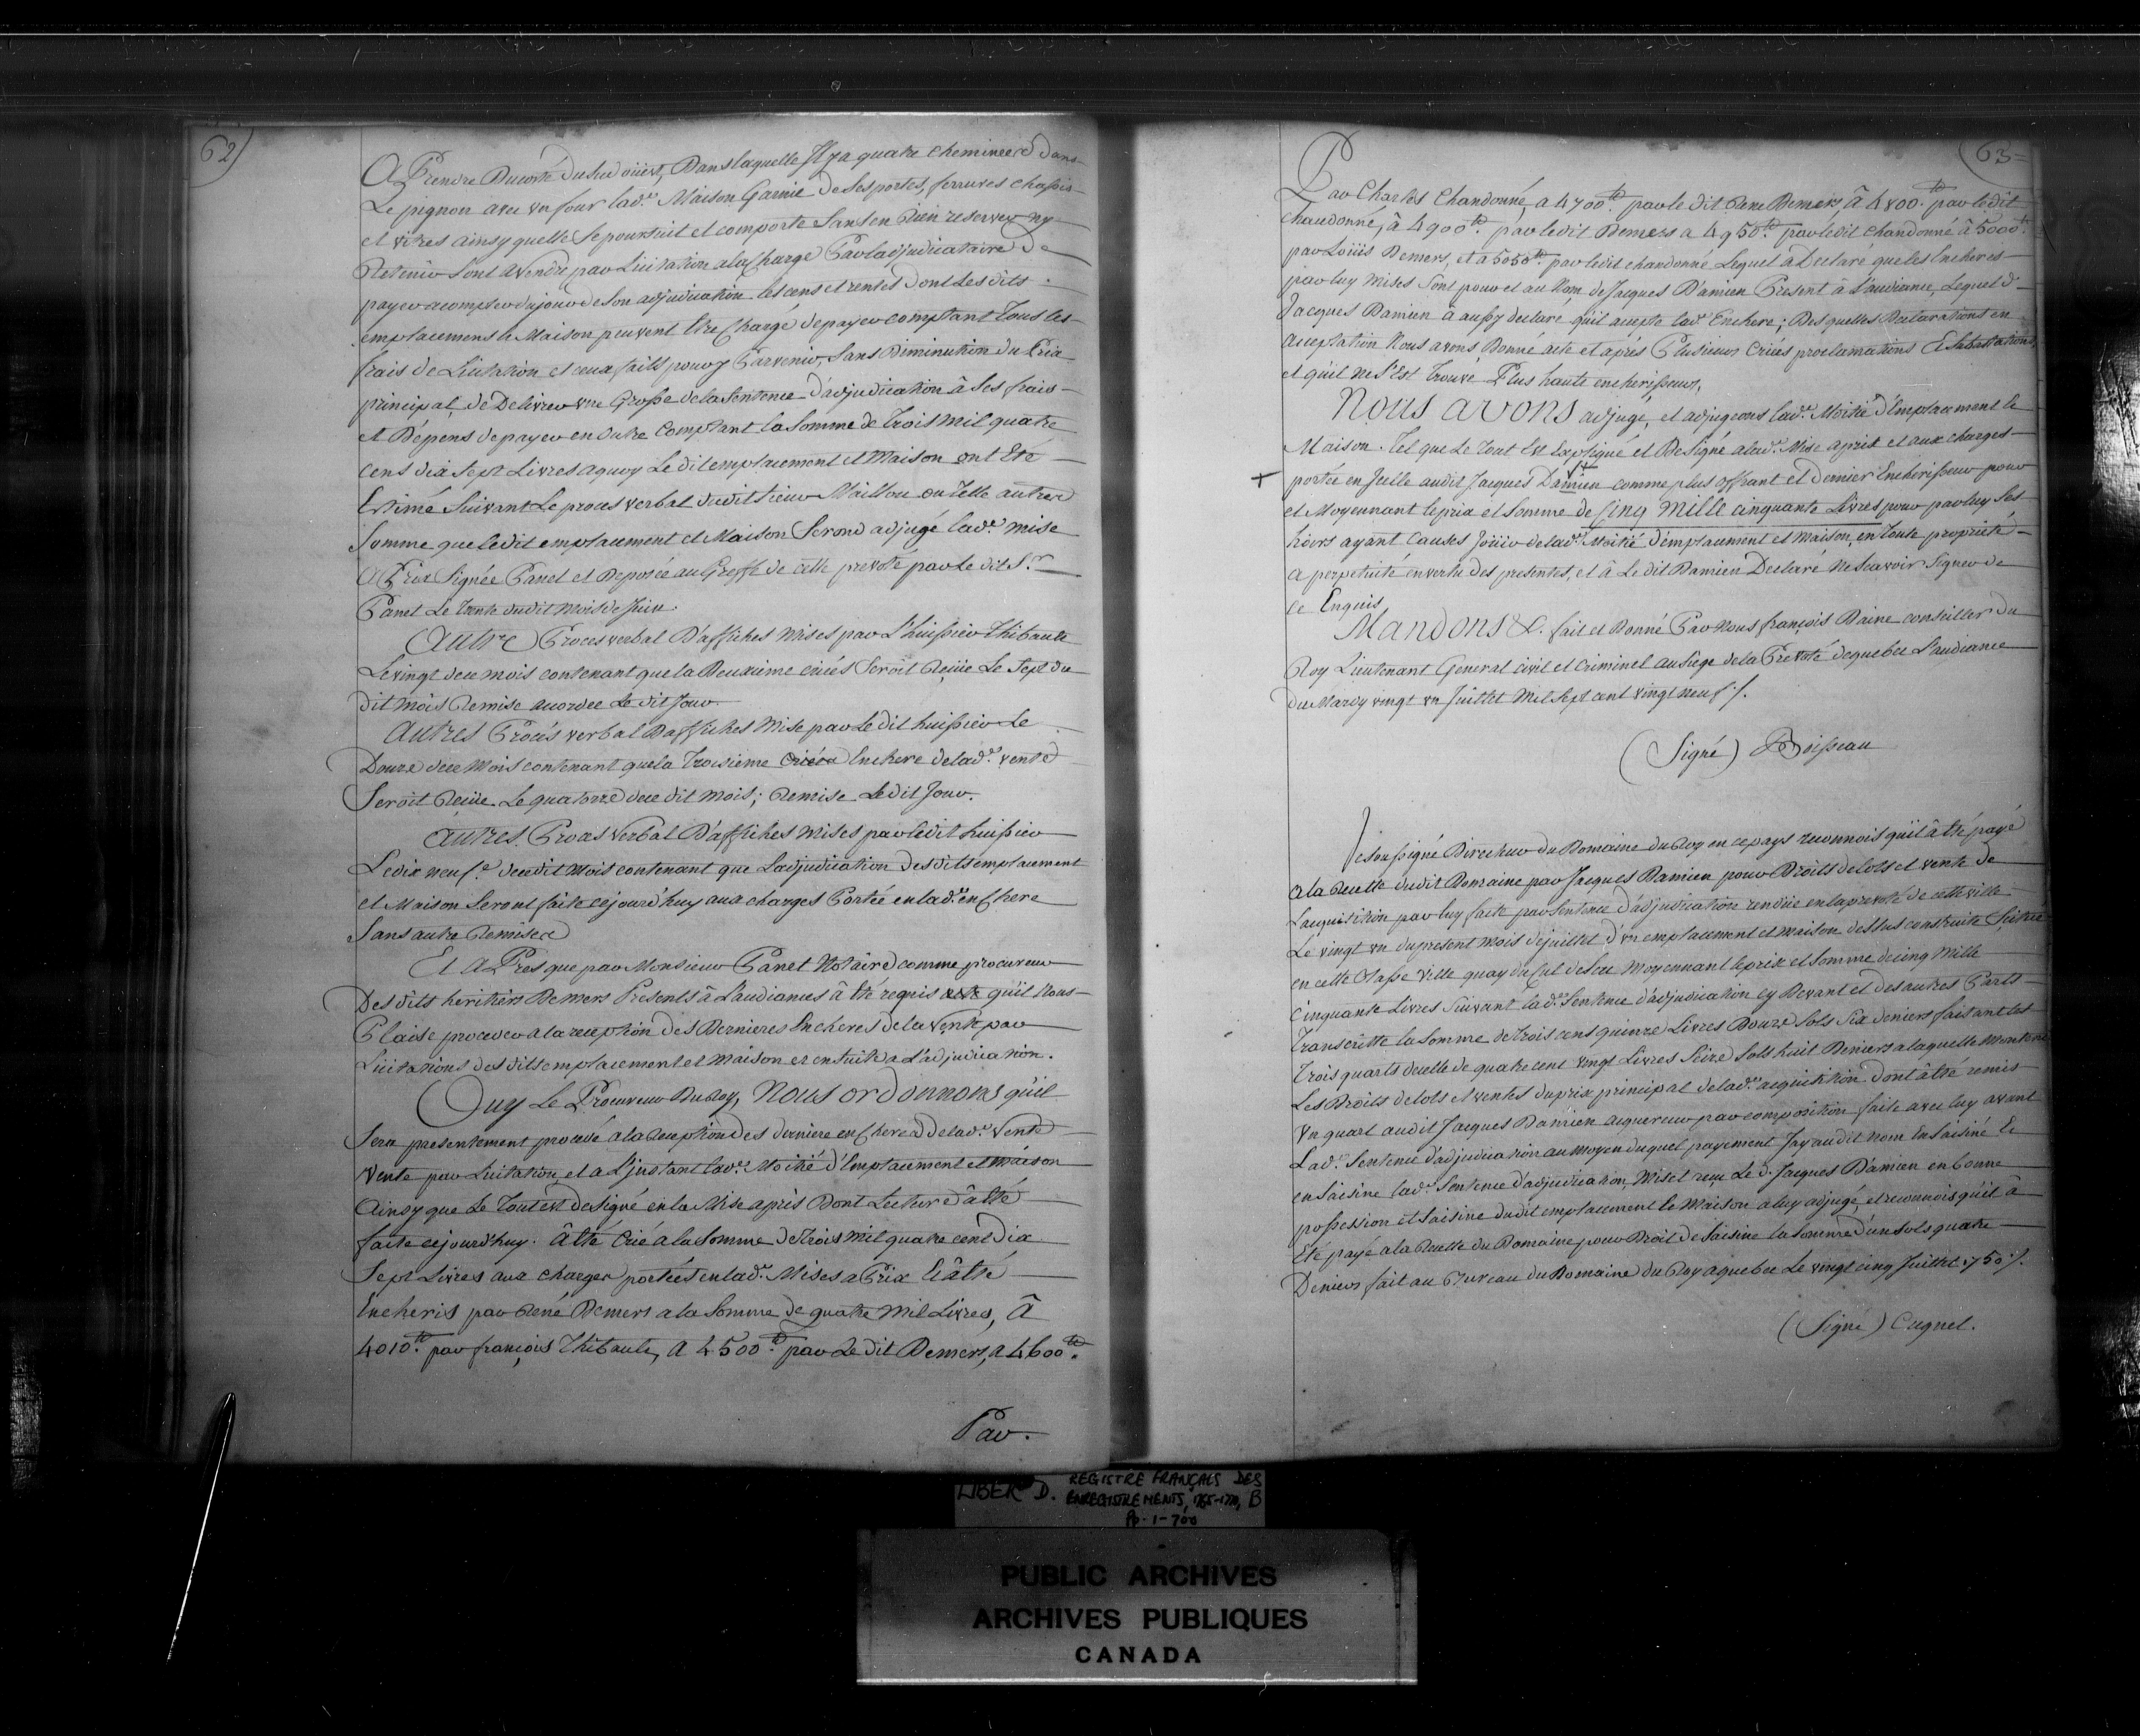 62)
A Prendre Du costé du Sud oüiest, Dans laquelle Il ya quatre cheminéés dans
Le pignon avec un four lad.e Maison Garnie de Ses portes, ferrures chassis
et vitres ainsy quelle Se poursuit et comporte Sans en Rien reserver ny
Retenir Sont a vendre par Licitation a la Charge Par Ladjudicataire de
payer acompter du jour de Son adjudication les cens et rentes Dont Les dits
emplacement & Maison peuvent Etre Chargé de payer comptant Tous les
frais de Licitation et ceux faits pour y Parvenir, Sans Diminution du Prix
principal, de Delivrer une Grosse de la Sentence d'adjudication â Ses frais
et Dépens de payer en outre Comptant la Somme de Trois mil quatre
cens dix Sept Livres a quoy Le dit emplacement et Maison ont Eté
Estimé Suivant Le procés verbal dudit Sieur Maillou ou Telle autre
Somme que ledit emplacement et Maison Seront adjugé lad.e mise
A Prix Signée Panet et Deposée au Greffe de cette prevoté par Le dit S.r
Panet Le Trente dudit Mois de Juin.
Autre Procés verbal D'affiches Mises par L'huissier Thibault
Le vingt de ce mois contenant que la Deuxieme criéé Seroit Reçüe Le Sept du
dit mois Remise accordée Le dit Jour.
Autres Procés verbal D'affiches Mise par le dit huissier Le
Douze de ce Mois contenant que la Troisieme Enchere de lad.e vente
Seroit Reçüe Le quatorze de ce dit mois; Remise Le dit Jour.
Autres Procés Verbal D'affiches Mises par ledit huissier
Le dix neuf.e de ce dit Mois contenant que L'adjudication des dits emplacement
et Maison Seront faite cejourd'huy aux charges Portée en lad.e enchere
Sans autre Remise
Et A Prés que par Monsieur Panet Notaire comme procureur
Des dits heritiers Demers Presents â L'audiance â été requis qu'il Nous
Plaise proceder a la reception des Dernieres Encheres de la Vente par
Licitations des dits emplacement et Maison et ensuite a L'adjudication.
Ouy Le Procureur Du Roy, Nous ordonnons qu'il
Sera presentement procedé a la reception des derniere encheres de lad.e Vente
Vente par Licitation, et a L'instant lad.e Moitié d'Emplacement et Maison
Ainsy que Le Tout est Designé en la Mise a prix Dont Lecture â été
faite cejourd'huy. â été Crié a la Somme de Trois mil quatre cent Dix
Sept Livres aux charges portées en lad.e Mises a Prix Et â été
Encheris par René Demers a la Somme de quatre mil Livres, â
4010.tt par françois Thibault, a 4500.tt par Le dit Demers, a 4600.tt
Par.
63=
Par Charles Chandonné, a 4700.tt par le dit René Demers, â 4800.tt par ledit
chandonné, â 4900.tt par ledit Demers a 4950.tt par ledit chandonné â 5000.tt
par Loüis Demers, et a 5050.tt par ledit chandonné Lequel à Declaré que les Encheres
par luy Mises Sont pour et au Nom de Jacques D'amien Present â L'audiance, Lequel d.
Jacques Damien a aussy declaré qu'il accepte lad.e Enchere; Desquelles Declarations en
acceptation Nous avons Donné acte et aprés Plusieurs Criées proclamations Et Subhastations
et qu'il ne S'Est Trouvé Plus haute encherisseur,
Nous avons adjugé, et adjugeons lad.e Moitié d'Emplacement &
Maison. Tel que Le Tout Est Expliqué et Designé a lad.e Mise a prix et aux charges
+ portée en Icelle audit Jacques Damien comme plus offrant et dernier Encherisseur pour
et Moyennant le prix et Somme de Cinq Mille cinquante Livres pour par luy Ses
hoirs ayant Causes Joüir de lad.e Moitié d'emplacement et Maison, en Toute proprieté
a perpetuité en vertu des presentes, et â Le dit Damien Declaré Ne Scavoir Signer de
ce Enquis
Mandons &.c fait et Donné Par Nous françois Daine conseiller du
Roy Lieutenant General civil et criminel au Siege de la Prevoté de quebec L'audiance
du Mardy vingt un Juillet Mil Sept cent vingt neuf ./.
(Signé) Boisseau
Je Soussigné Directeur du Domaine du Roy en ce pays reconnois qu'il â été payé
a la Recette dudit Domaine par Jacques Damien pour Droits de lots et vente de
L'acquisition par luy faite par Sentence d'adjudication rendue en la prevoté de cette ville
Le vingt un du present Mois de juillet d'un emplacement et maison dessus construite Scitué
en cette Basse Ville quay du Cul de Sac Moyennant le prix et Somme de cinq Mille
cinquante Livres Suivant lad.e Sentence d'adjudication cy Devant et des autres Parts
Transcritte la Somme de Trois cens quinze Livres Douze Sols Six deniers faisant les
Trois quarts de celle de quatre cent vingt Livres Seize Sols huit Deniers a laquelle Montent
Les Droits de lots et ventes du prix principal de lad.e acquisition dont â été remis
un quart audit Jacques Damien acquereur par composition faite avec luy avant
Lad.e Sentence d'adjudication au moyen duquel payement J'ay audit nom Ensaisiné &
ensaisine lad.e Sentence d'adjudication, Mis et reçu Le d. Jacques D'amien en bonne
possession et Saisine dudit emplacement & Maison a luy adjugé, et reconnois qu'il â
Eté payé a la Recette du Domaine pour Droit de Saisine la Somme d'un Sols quatre
Deniers fait au Bureau du Domaine du Roy a quebec Le vingt cinq Juillet 1750 ./.
(Signé) Cugnet.
LIBER D. REGISTRE FRANÇAIS DES
ENREGISTREMENTS, 1765-1770, B
Pp. 1-700
PUBLIC ARCHIVES
ARCHIVES PUBLIQUES
CANADA